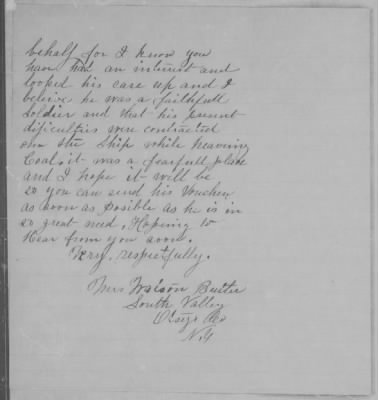 behalf for I know you
have had an interest and
looked his case up and I
beleive he was a faithfull
Soldier and that his present
dificultis were contracted
on the Ship while heaving
Coal it was a fearfull place
and I hope it will be
so you can send his Voucher
as soon as posible as he is in
so great need, Hopeing to
Hear from you soon.
Very, respectfully.
Mrs Watson Butler
South Valley
Otsego Co
N.Y